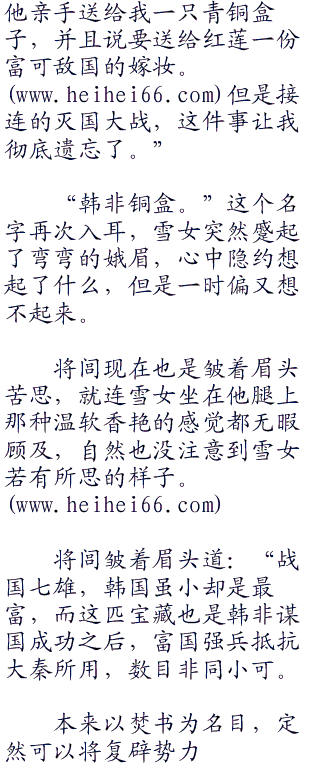 他亲手送给我一只青铜盒
子，并且说要送给红莲一份
富可敌国的嫁妆。
(www.heihei66.com)但是接
连的灭国大战，这件事让我
彻底遗忘了。”
“韩非铜盒。”这个名
字再次入耳，雪女突然蹙起
了弯弯的娥眉，心中隐约想
起了什么，但是一时偏又想
不起来。
将闾现在也是皱着眉头
苦思，就连雪女坐在他腿上
那种温软香艳的感觉都无暇
顾及，自然也没注意到雪女
若有所思的样子。
(www.heihei66.com)
将闾皱着眉头道：“战
国七雄，韩国虽小却是最
富，而这匹宝藏也是韩非谋
国成功之后，富国强兵抵抗
大秦所用，数目非同小可。
本来以焚书为名目，定
然可以将复辟势力